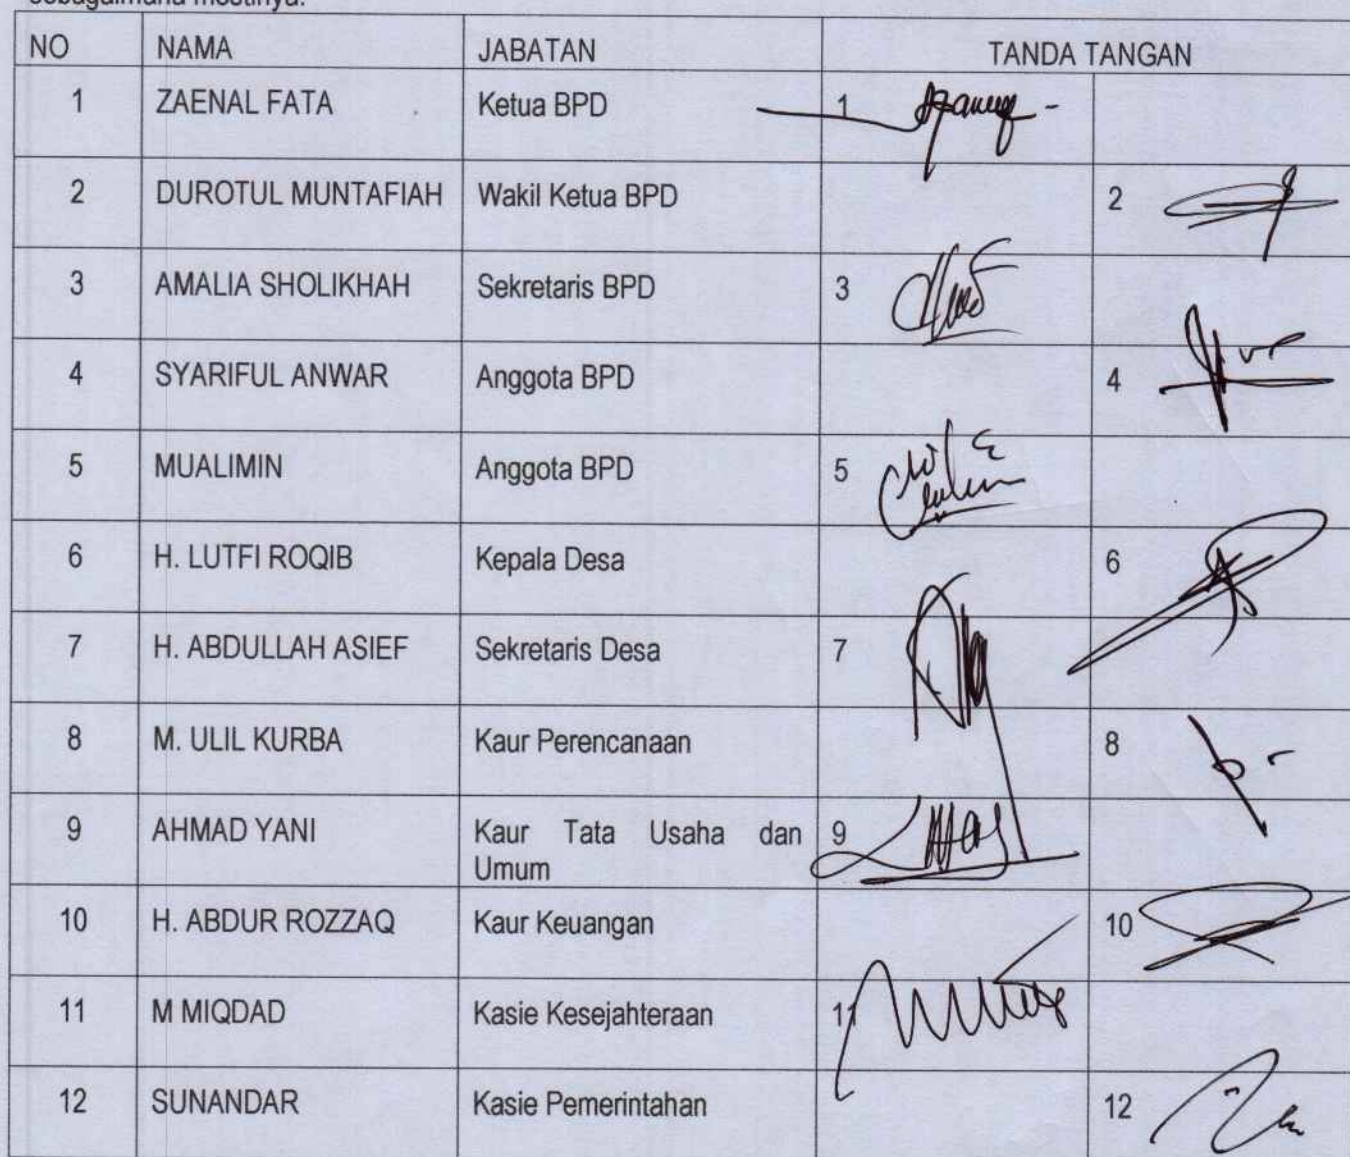 sebagaimana mestinya.
NO NAMA JABATAN TANDA TANGAN
1 ZAENAL FATA Ketua BPD 1
2 DUROTUL MUNTAFIAH Wakil Ketua BPD 2
3 AMALIA SHOLIKHAH Sekretaris BPD 3
4 SYARIFUL ANWAR Anggota BPD 4
5 MUALIMIN Anggota BPD 5
6 H. LUTFI ROQIB Kepala Desa 6
7 H. ABDULLAH ASIEF Sekretaris Desa 7
8 M. ULIL KURBA Kaur Perencanaan 8
9 AHMAD YANI Kaur Tata Usaha dan 9
Umum
10 H. ABDUR ROZZAQ Kaur Keuangan 10
11 M MIQDAD Kasie Kesejahteraan 11
12 SUNANDAR Kasie Pemerintahan 12